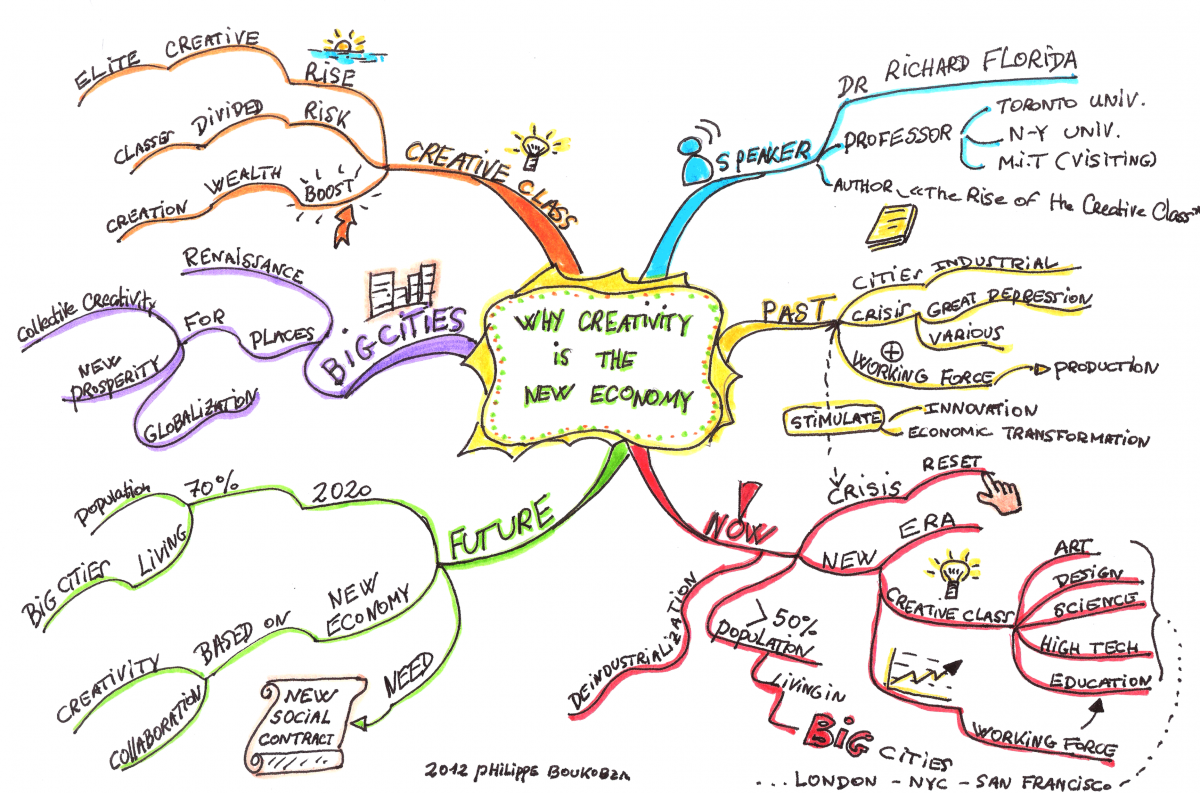 WHY CREATIVITY
IS THE
NEW ECONOMY
SPEAKER
DR RICHARD FLORIDA
PROFESSOR
TORONTO UNIV.
N-Y UNIV.
M.I.T (VISITING)
AUTHOR «The Rise of the Creative Class"
PAST
CITIES INDUSTRIAL
CRISIS GREAT DEPRESSION
VARIOUS
WORKING FORCE
PRODUCTION
STIMULATE
INNOVATION
ECONOMIC TRANSFORMATION
NOW
CRISIS
RESET
NEW
ERA
CREATIVE CLASS
ART
DESIGN
SCIENCE
HIGH TECH
EDUCATION
WORKING FORCE
> 50%
POPULATION
LIVING IN
BIG CITIES
DEINDUSTRIALIZATION
... LONDON - NYC - SAN FRANCISCO
FUTURE
2020
70%
Population
LIVING
BIG CITIES
NEW
ECONOMY
BASED ON
CREATIVITY
COLLABORATION
NEED
NEW
SOCIAL
CONTRACT
BIG CITIES
RENAISSANCE
PLACES
FOR
Collective Creativity
NEW
PROSPERITY
GLOBALIZATION
CREATIVE CLASS
RISE
CREATIVE
ELITE
RISK
DIVIDED
CLASSES
BOOST
WEALTH
CREATION
2012 PHILIPPE BOUKOBZA